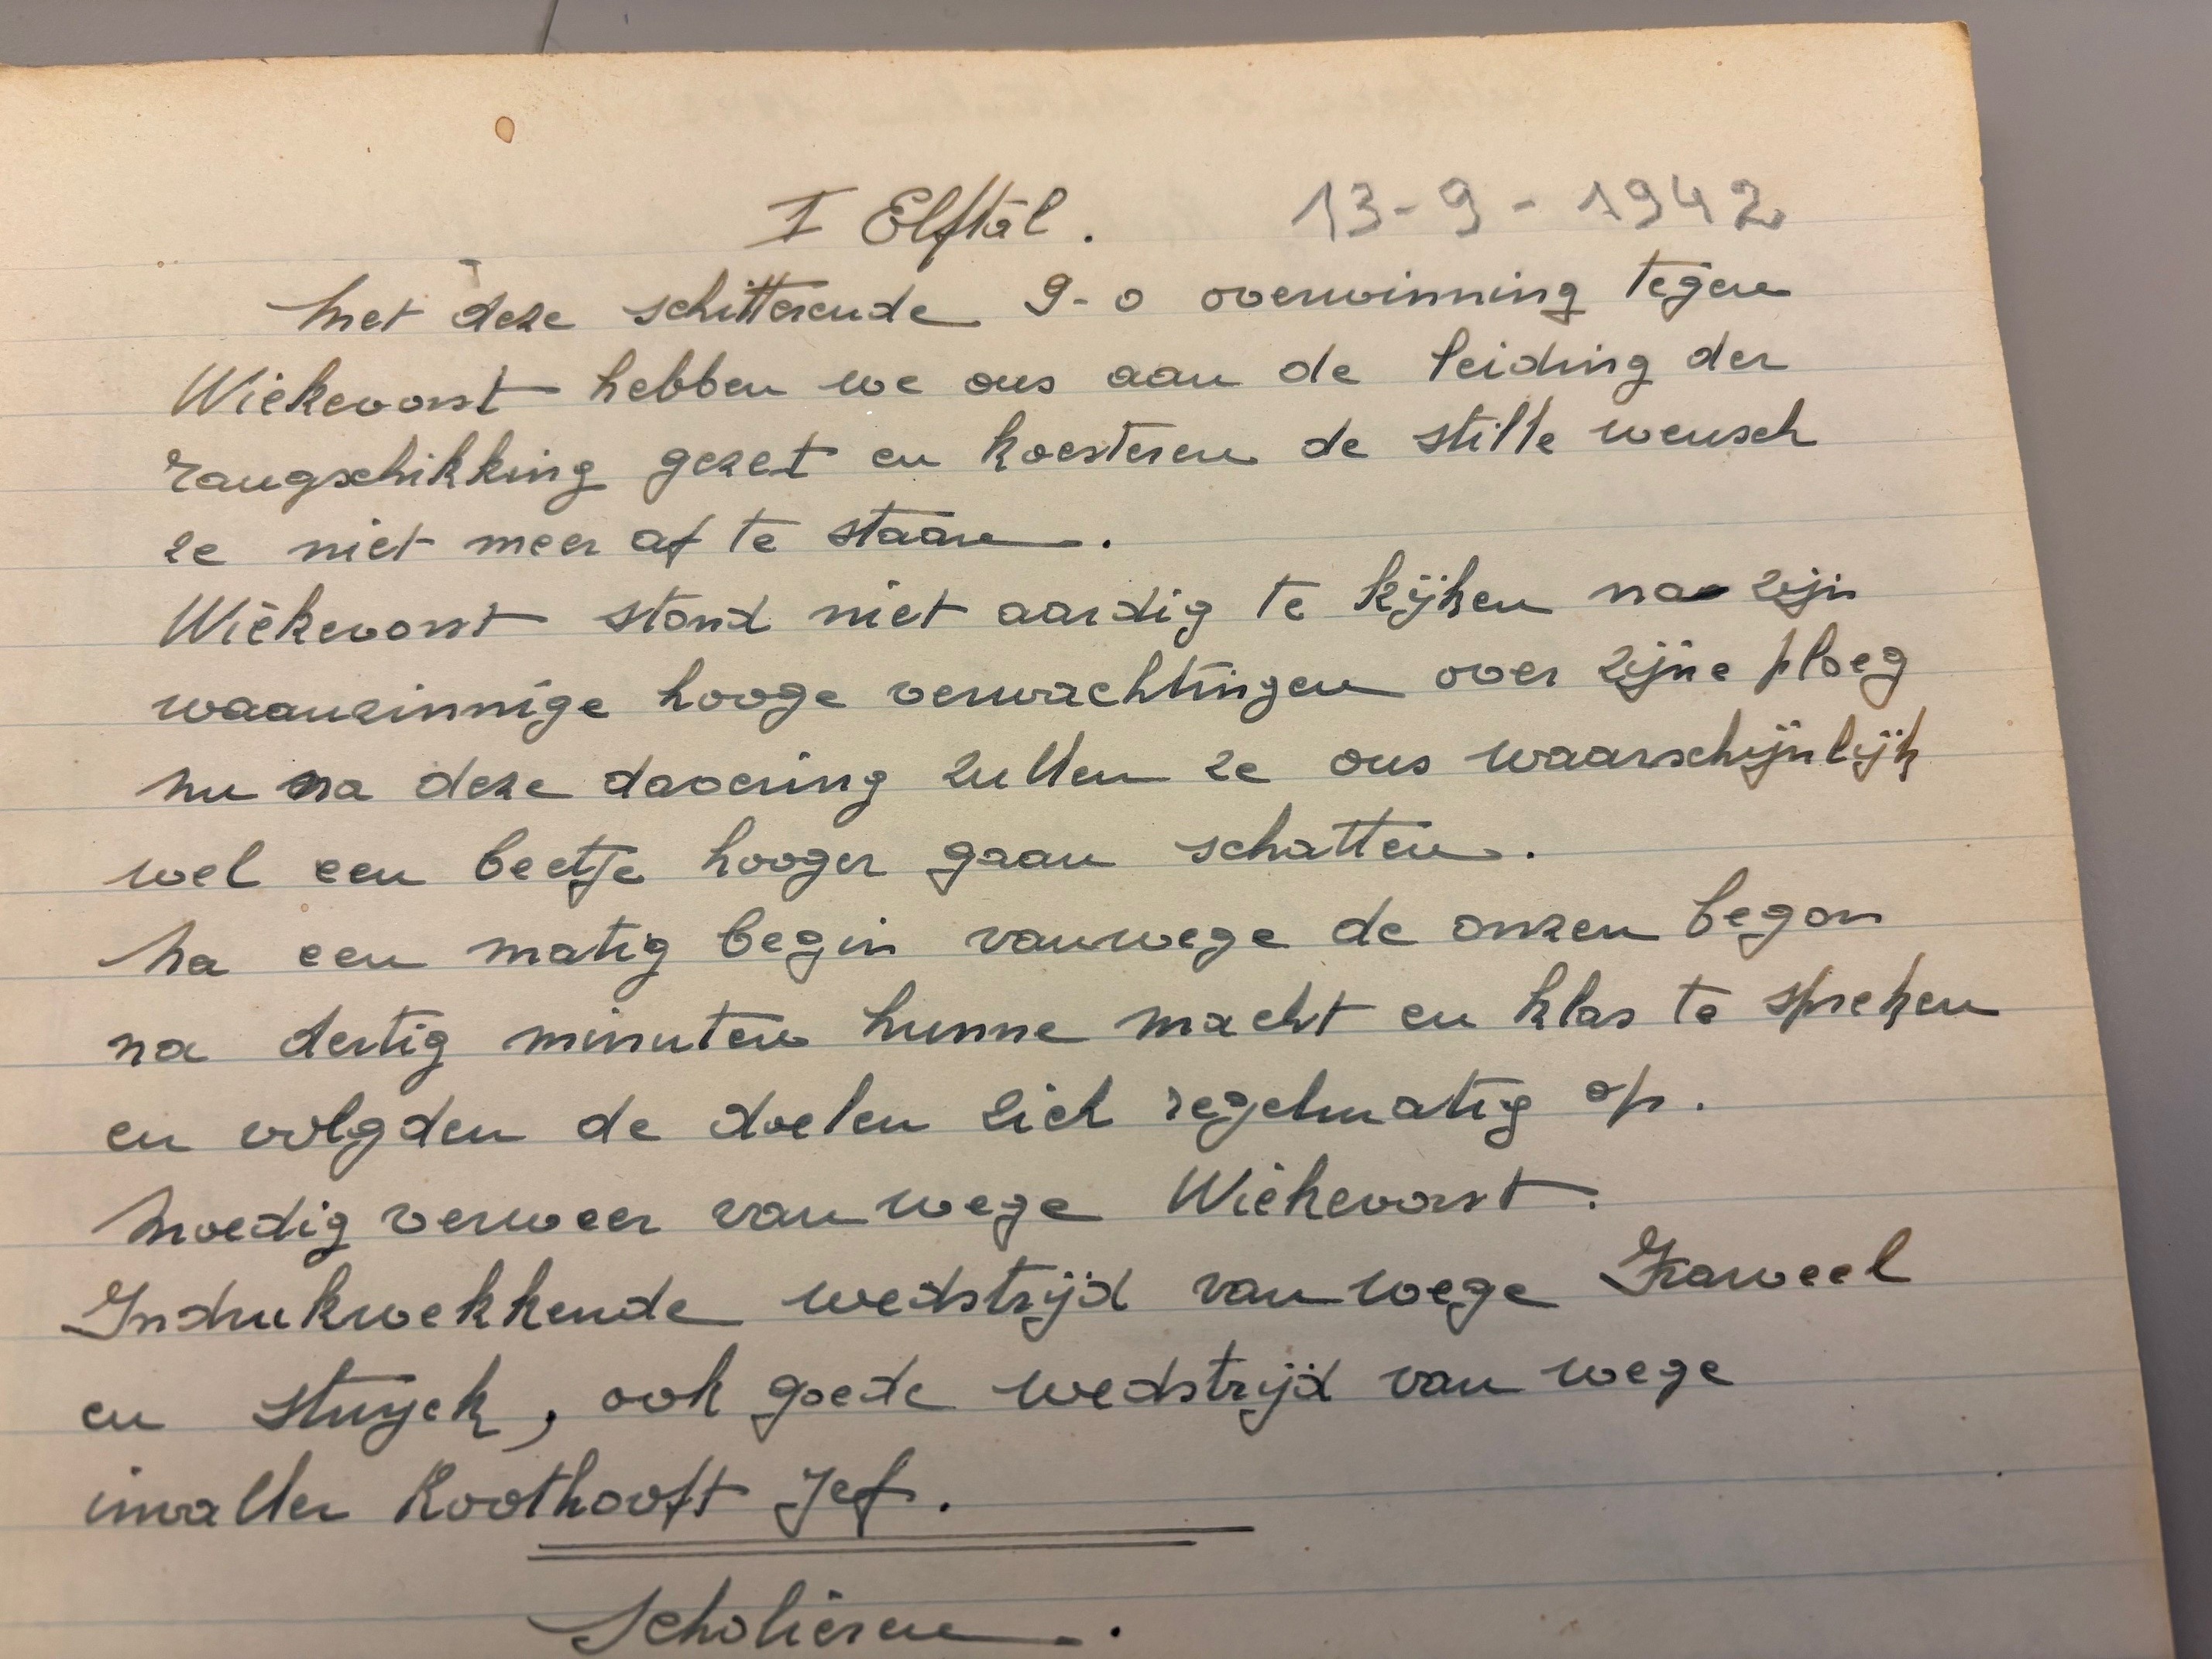 I Elftal. 13-9-1942
Met deze schitterende 9-0 overwinning tegen
Wiekevorst hebben we ons aan de leiding der
rangschikking gezet en koesteren de stille wensch
ze niet meer af te staan.
Wiekevorst stond niet aardig te kijken na zijn
waanzinnige hooge verwachtingen over zijne ploeg
nu na deze davering zullen ze ons waarschijnlijk
wel een beetje hooger gaan schatten.
Na een matig begin vanwege de onzen begon
na dertig minuten hunne macht en klas te spreken
en volgden de doelen zich regelmatig op.
Moedig verweer van wege Wiekevorst.
Indrukwekkende wedstrijd van wege
en Stuyck, ook goede wedstrijd van wege
invaller Roothooft Jef.
Scholieren.